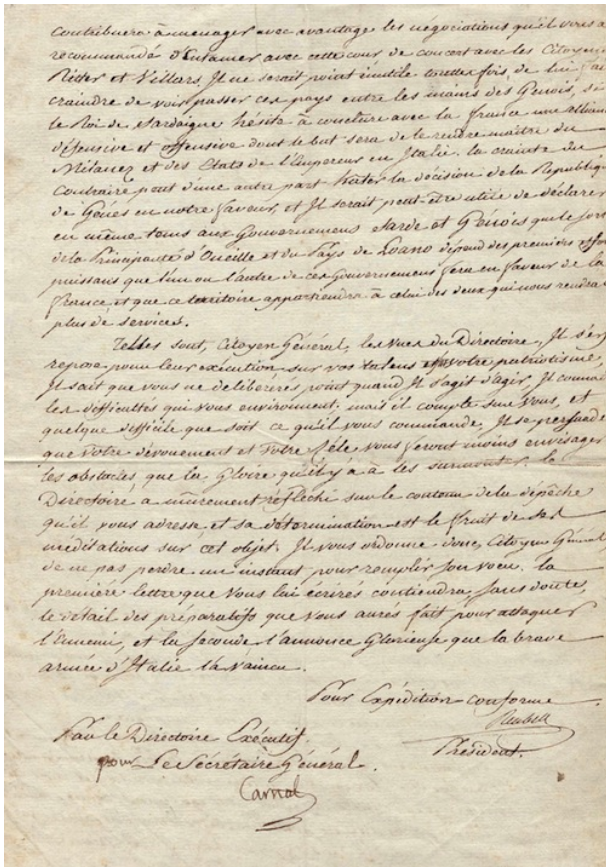 contribuera à menager avec avantage les negociations qu'il vous a
recommandé d'entamer avec cette cour de concert avec les Citoyens
Ritter et Villars. Il ne serait point inutile toutes fois, de lui
craindre de voir passer ces pays entre les mains des Genois, si
le Roi de Sardaigne hésite à conclure avec la France une alliance
défensive et offensive dont le but sera de le rendre maître du
Milanez et des Etats de l'Empereur en Italie. la crainte du
Contraire peut d'une autre part hater la décision de la Republique
de Génes en notre faveur, et Il serait peut-être utile de déclarer
en même tems aux Gouvernemens Sarde et Génois que le sort
de la Principauté d'Oneille et du Pays de Loano dépend des premiers efforts
puissans que l'un ou l'autre de ces Gouvernemens fera en faveur de la
france et que ce territoire appartiendra à celui des deux qui nous rendra
plus de services.
Telles sont, Citoyen Général, les vues du Directoire, Il s'en
repose pour leur exécution sur vos talens et votre patriotisme,
Il sait que vous ne deliberés point quand Il s'agit d'agir, Il connait
les difficultés qui vous environnent. mais il compte sur vous, et
quelque difficile que soit ce qu'il vous commande, Il se persuade
que votre dévouement et votre zéle vous feront moins envisager
les obstacles que la Gloire qu'il y a à les surmonter. le
Directoire a mûrement réfléchi sur le contenu de la dépêche
qu'il vous adresse et sa détermination est le fruit de ses
méditations sur cet objet. Il vous ordonne donc, Citoyen Général
de ne pas perdre un instant pour remplir son voeu. la
première lettre que vous lui écrirés contiendra, sans doute,
le détail des préparatifs que vous aurés fait pour attaquer
l'Ennemi, et la seconde l'annonce Glorieuse que la brave
armée d'Italie l'a vaincu.
Pour Expédition conforme
Reubell
Président.
Par le Directoire Exécutif.
pour Le Sécrétaire Général.
Carnot